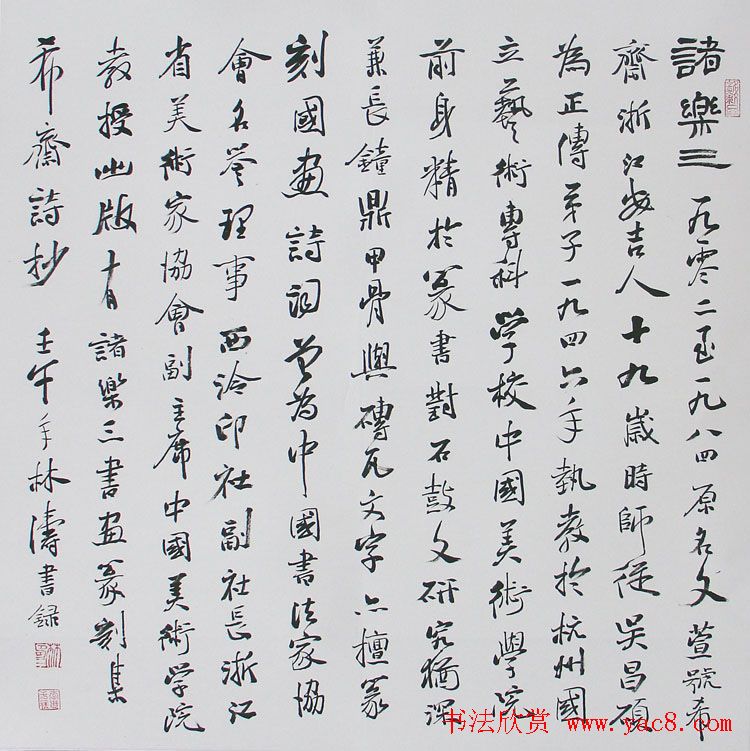 諸樂三 一九零二至一九八四原名文萱號希
齋浙江安吉人十九歲時師從吴昌碩
為正傳弟子一九四六年執教於杭州國
立藝術專科学校中國美術學院
前身精於篆書對石鼓文研究猶深
兼長鐘鼎甲骨與磚瓦文字亦擅篆
刻國画詩詞曾為中國書法家協
會名譽理事西泠印社副社長浙江
省美術家協會副主席中國美術学院
教授出版有諸樂三書画篆刻集
希齋詩抄 壬午年林濤書録
书法欣赏 www.yac8.com